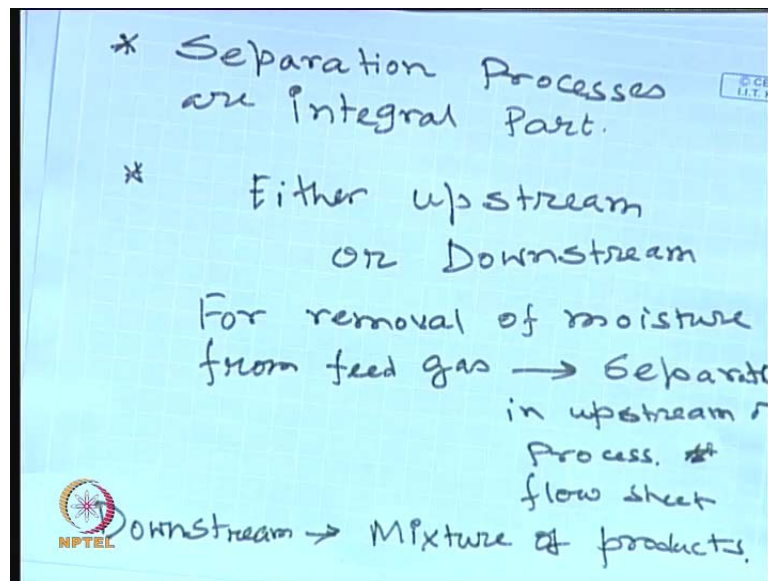 * Separation Processes
are integral Part.
© CE
I.I.T. K
* Either upstream
or Downstream
For removal of moisture
from feed gas → Separat
in upstream
process.
flow sheet
Downstream → Mixture of products.
NPTEL